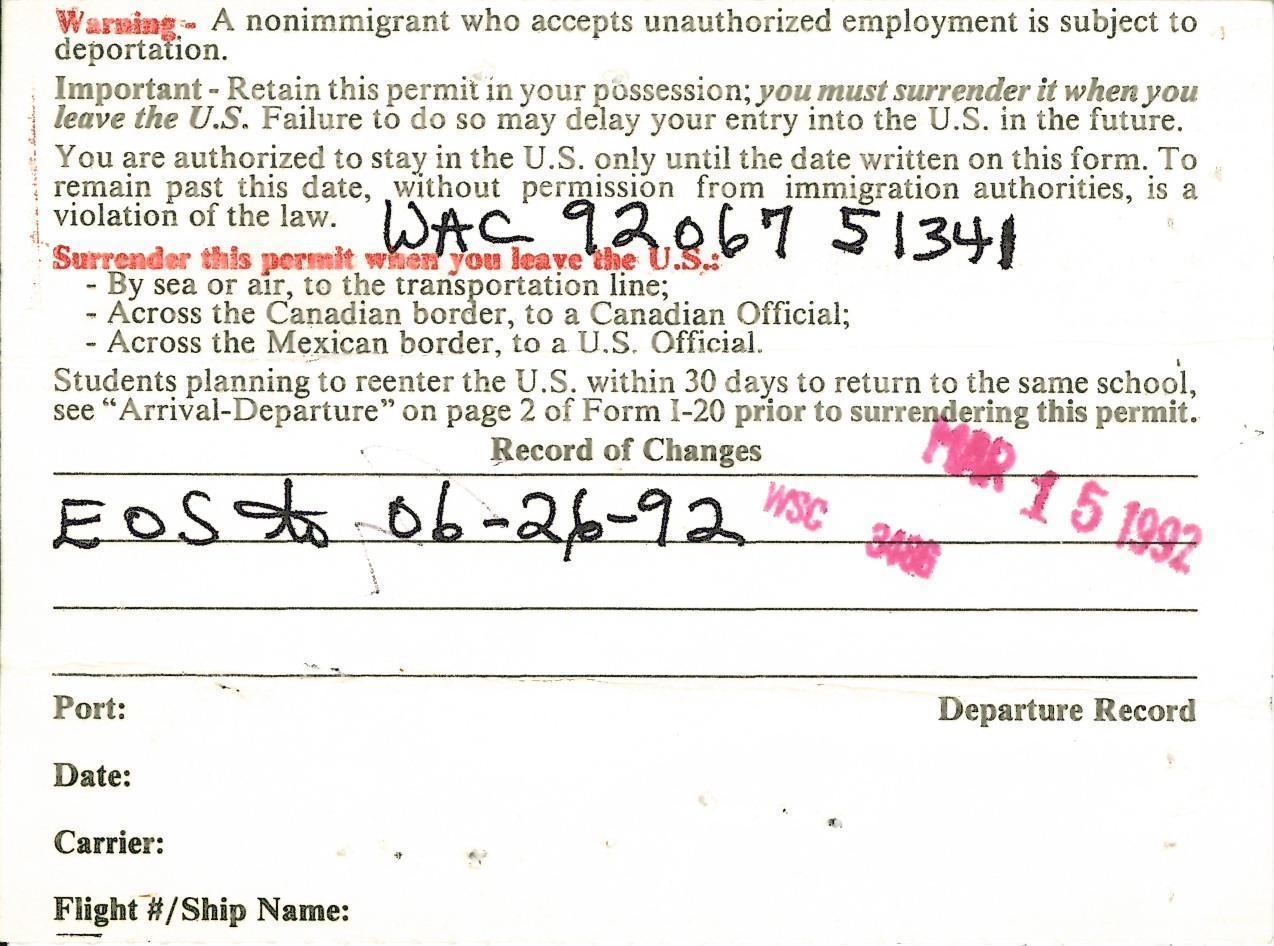 Warning - A nonimmigrant who accepts unauthorized employment is subject to
deportation.
Important - Retain this permit in your possession; you must surrender it when you
leave the U.S. Failure to do so may delay your entry into the U.S. in the future.
You are authorized to stay in the U.S. only until the date written on this form. To
remain past this date, without permission from immigration authorities, is a
violation of the law.
WAC 92067 51341
Surrender this permit when you leave the U.S.:
- By sea or air, to the transportation line;
- Across the Canadian border, to a Canadian Official;
- Across the Mexican border, to a U.S. Official.
Students planning to reenter the U.S. within 30 days to return to the same school,
see “Arrival-Departure” on page 2 of Form I-20 prior to surrendering this permit.
Record of Changes
MAR 15 1992
EOS to 06-26-92 WSC 3486
Port: Departure Record
Date:
Carrier:
Flight #/Ship Name: